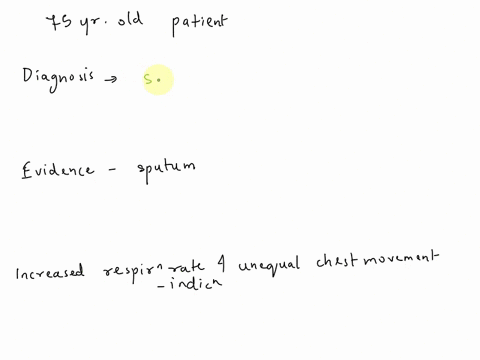 75 yr. old patient
Diagnosis → S.
Evidence - sputum
Increased respirⁿ rate & unequal chest movement
- indicⁿ